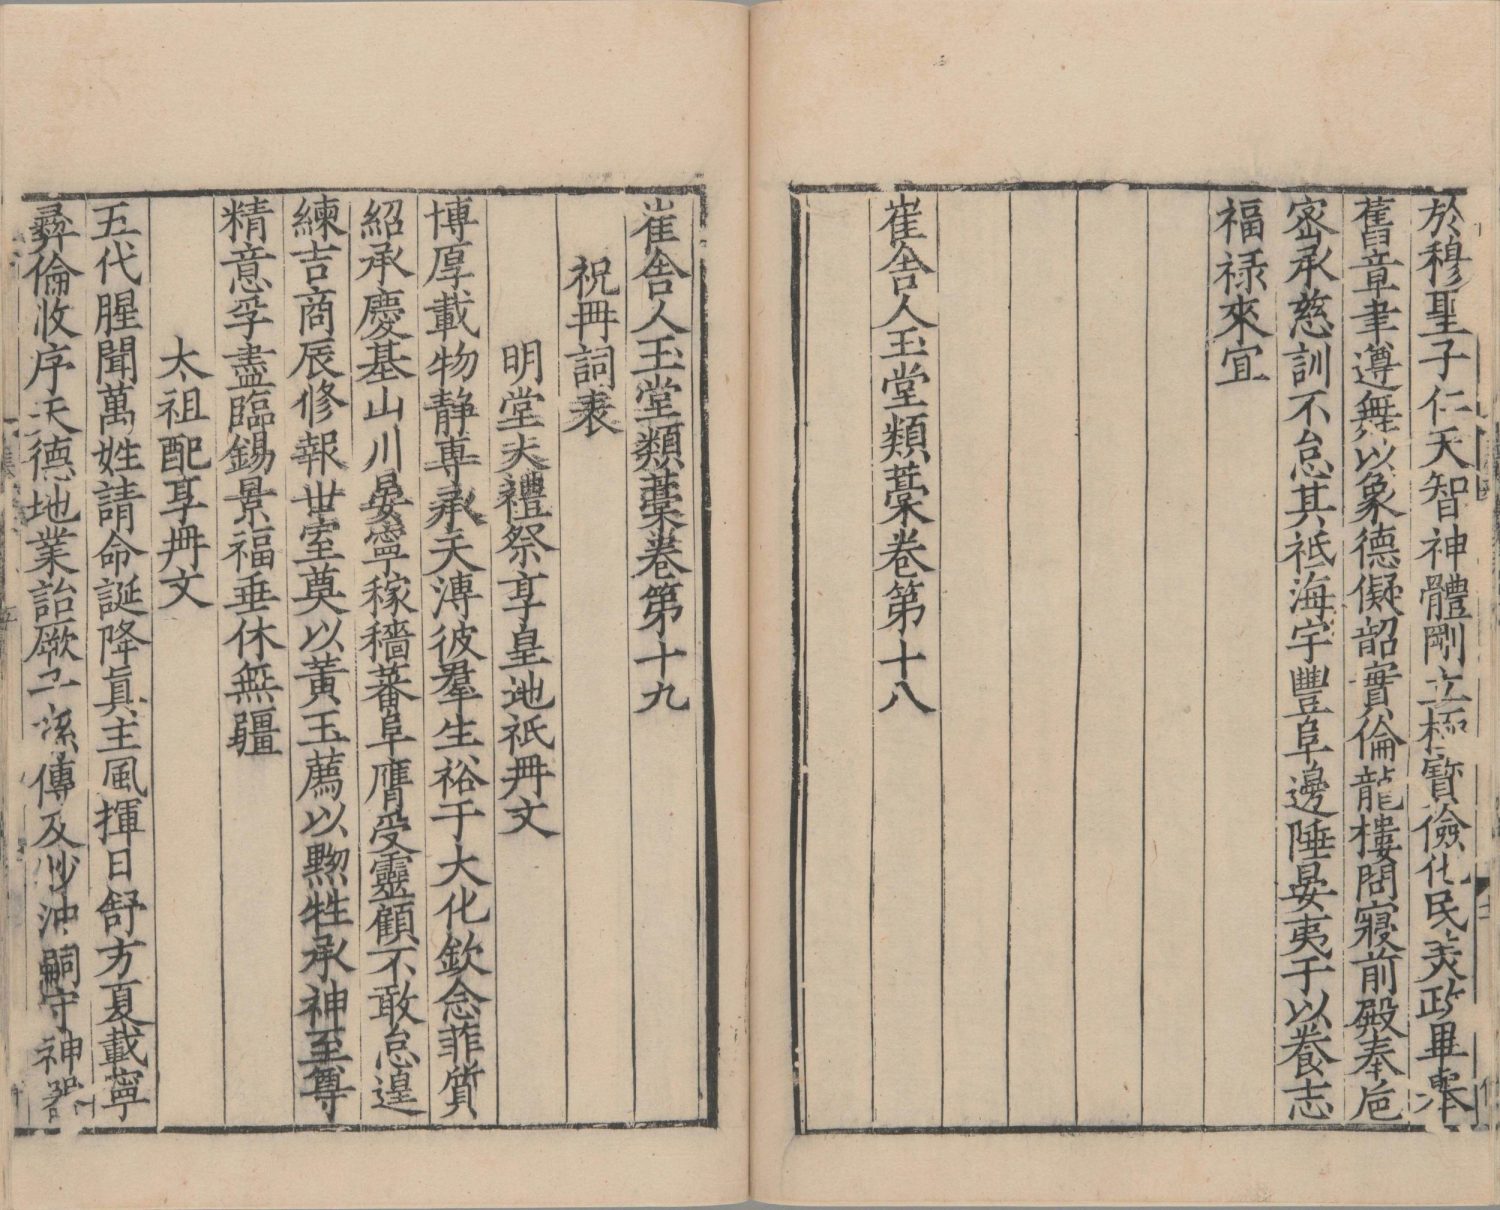 於穆聖子仁天智神體剛立極寶儉化民美政畢舉
舊章聿遵無以象德儗韶實倫龍樓問寢前殿奉巵
密承慈訓不怠其祗海宇豐阜邊陲晏夷于以養志
福禄來宜
崔舎人玉堂類藳卷第十八
崔舎人玉堂類藳卷第十九
祝冊詞表
明堂大禮祭享皇地祇冊文
博厚載物静専承天溥彼羣生裕于大化欽念菲質
紹承慶基山川晏寧稼穡蕃阜膺受靈顧不敢怠遑
練吉商辰修報世室奠以黄玉薦以黝牲承神至尊
精意孚盡臨錫景福垂休無疆
太祖配享冊文
五代腥聞萬姓請命誕降真主風揮日舒方夏載寧
彛倫攸序天德地業詒厥子孫傳及眇沖嗣守神器